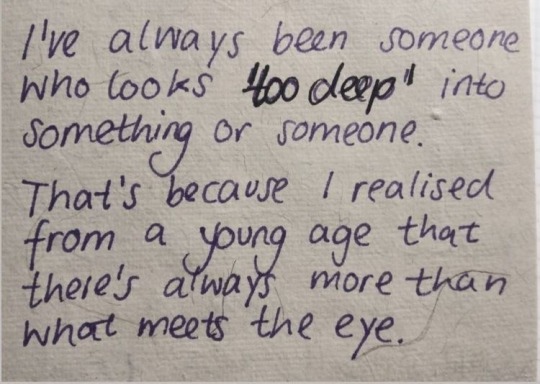 I've always been someone
who looks "too deep" into
something or someone.
That's because I realised
from a young age that
there's always more than
what meets the eye.